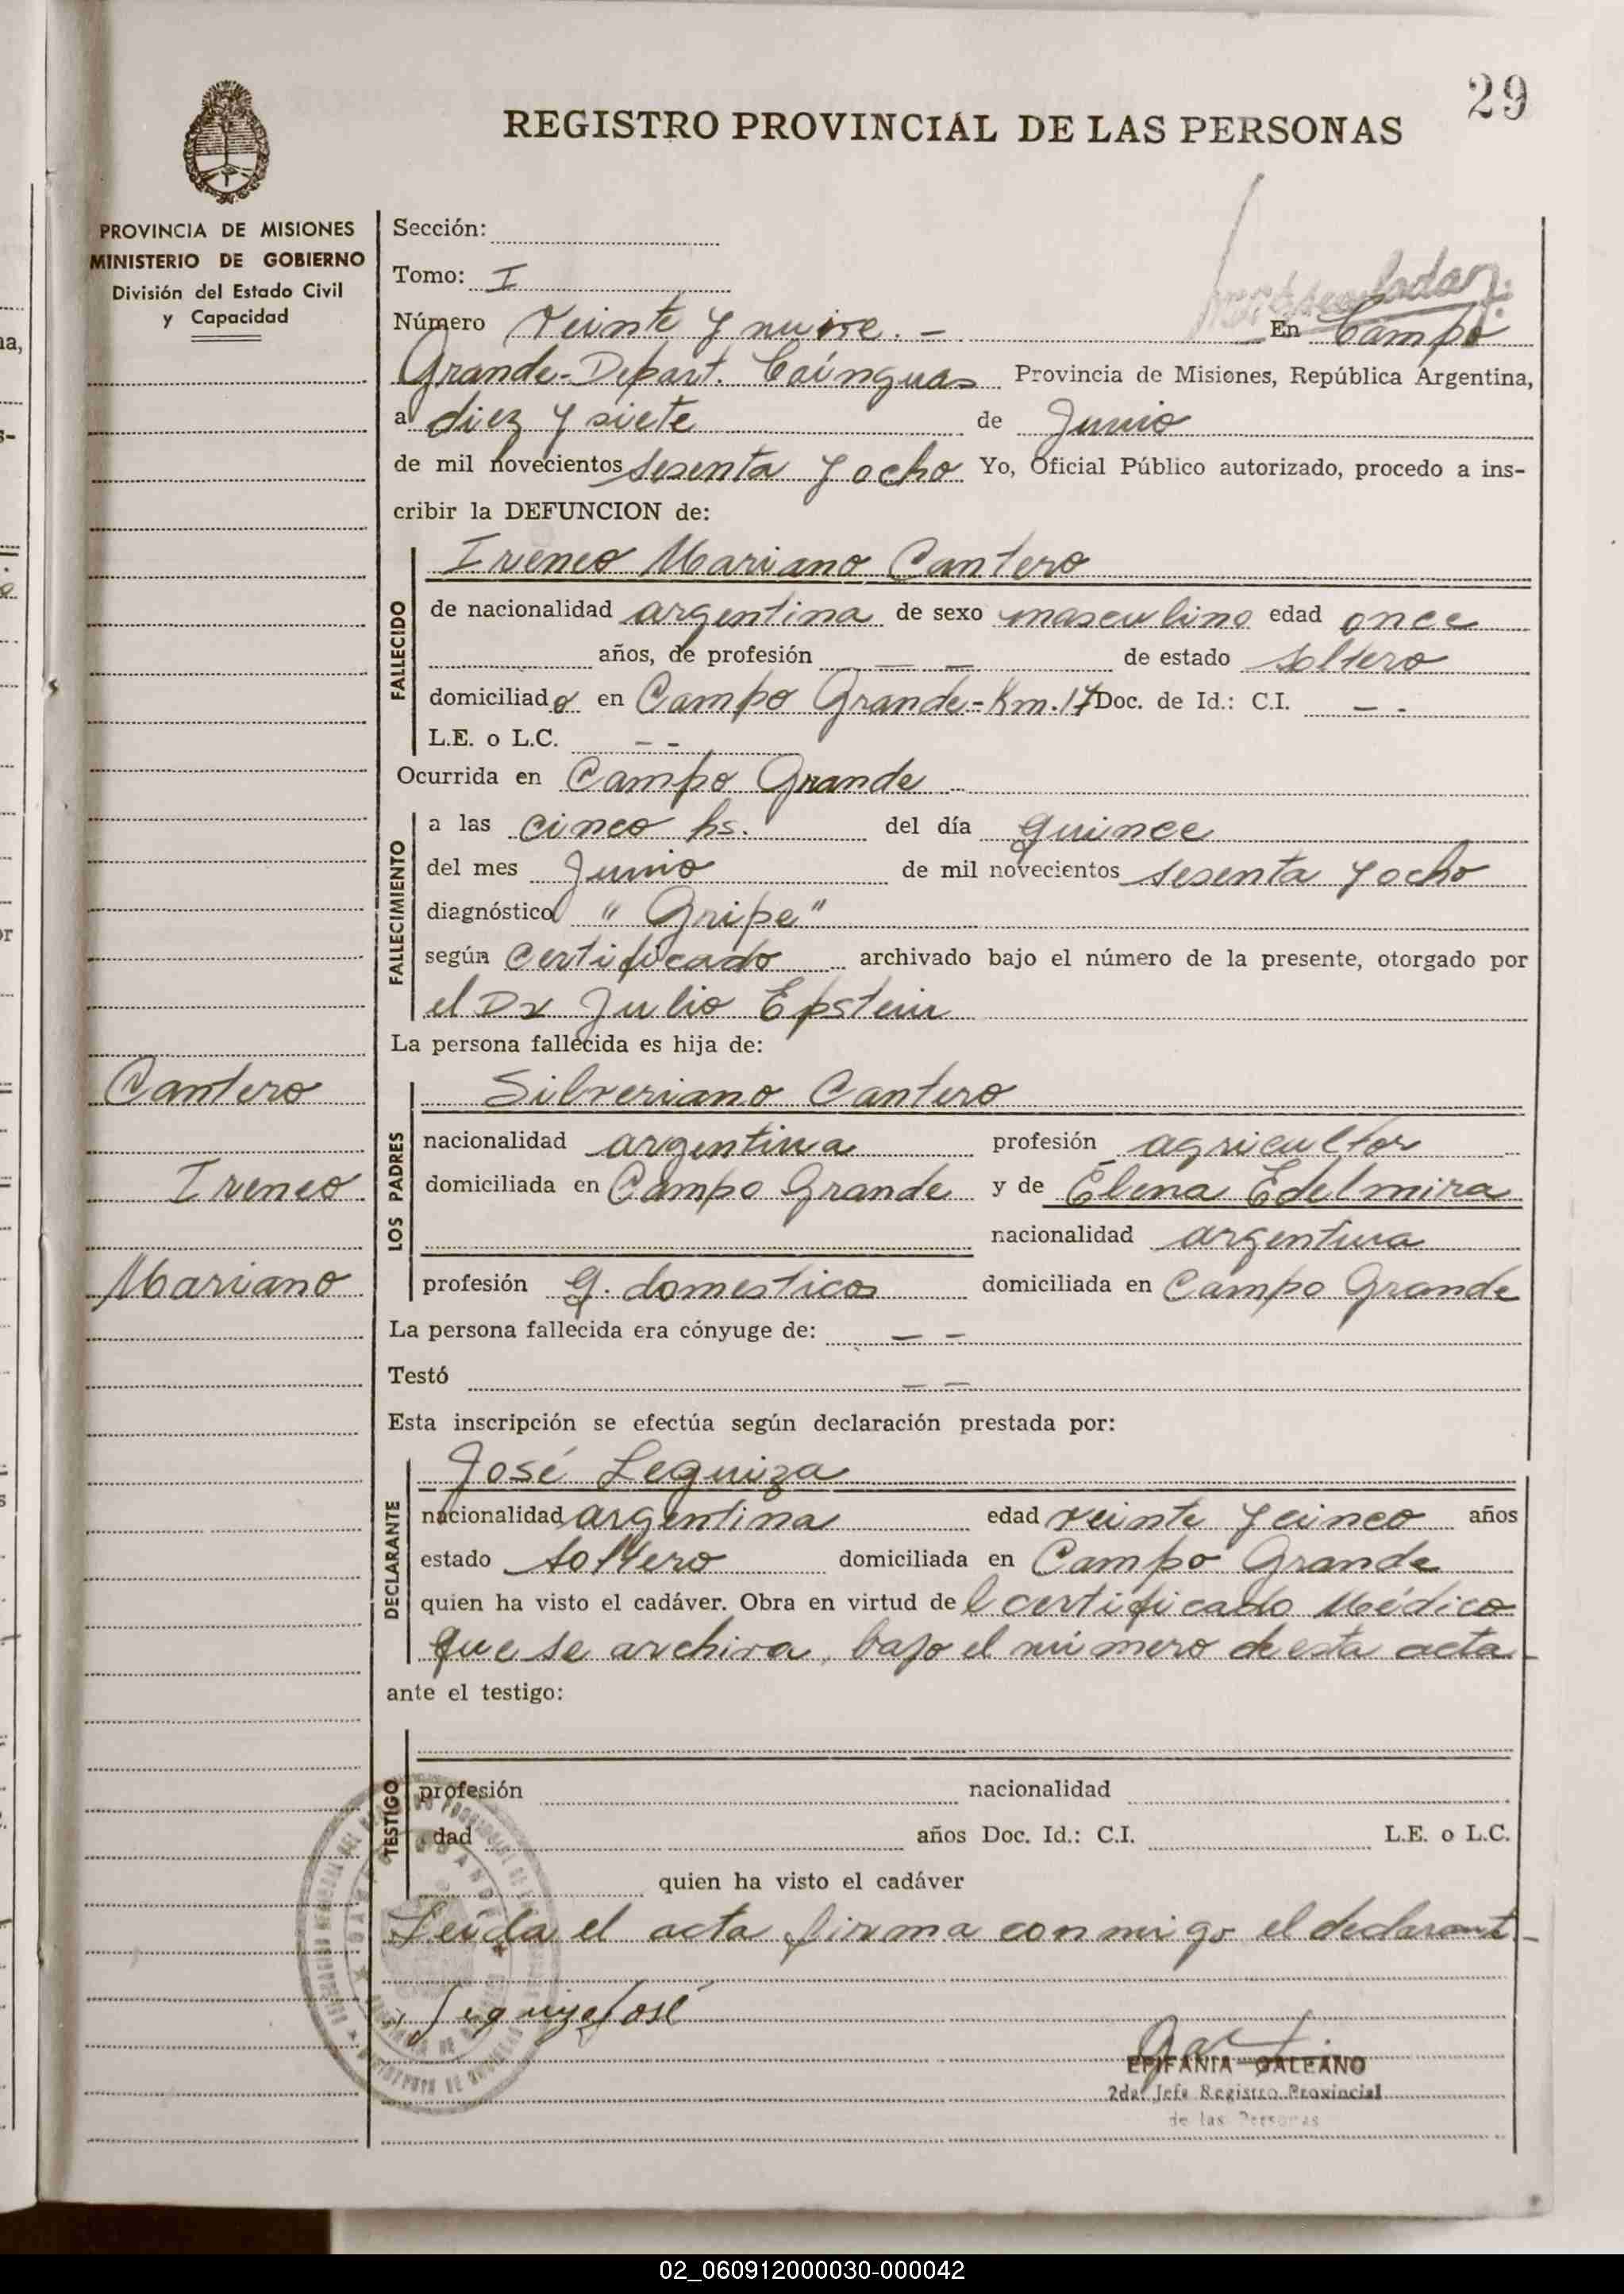 29
REGISTRO PROVINCIAL DE LAS PERSONAS
PROVINCIA DE MISIONES
MINISTERIO DE GOBIERNO
División del Estado Civil
y Capacidad
Sección:
Tomo: I
Número Veinte y nueve. - En Campo
Grande-Depart. Cainguas Provincia de Misiones, República Argentina,
a diez y siete de Junio
de mil novecientos sesenta y ocho Yo, Oficial Público autorizado, procedo a ins-
cribir la DEFUNCION de:
FALLECIDO
Ireneo Mariano Cantero
de nacionalidad argentina de sexo masculino edad once
años, de profesión — — de estado soltero
domiciliado en Campo Grande-Km.17 Doc. de Id.: C.I. — -
L.E. o L.C. - -
Ocurrida en Campo Grande -
FALLECIMIENTO
a las cinco hs. del día quince
del mes Junio de mil novecientos sesenta y ocho
diagnóstico "Gripe"
según certificado archivado bajo el número de la presente, otorgado por
el Dr Julio Epstein
La persona fallecida es hija de:
Cantero
Ireneo
Mariano
LOS PADRES
Silveriano Cantero
nacionalidad argentina profesión agricultor
domiciliada en Campo Grande y de Elena Edelmira
nacionalidad argentina
profesión q. domesticos domiciliada en Campo Grande
La persona fallecida era cónyuge de: — —
Testó — —
Esta inscripción se efectúa según declaración prestada por:
DECLARANTE
José Leguiza
nacionalidad argentina edad veinte y cinco años
estado soltero domiciliada en Campo Grande
quien ha visto el cadáver. Obra en virtud del certificado Médico
que se archiva, bajo el número de esta acta -
ante el testigo:
TESTIGO
profesión nacionalidad
dad años Doc. Id.: C.I. L.E. o L.C.
quien ha visto el cadáver
Leída el acta firma conmigo el declarant -
Leguiza José
EPIFANIA GALEANO
2da. Jefe Registro Provincial
de las Personas
02_060912000030-000042